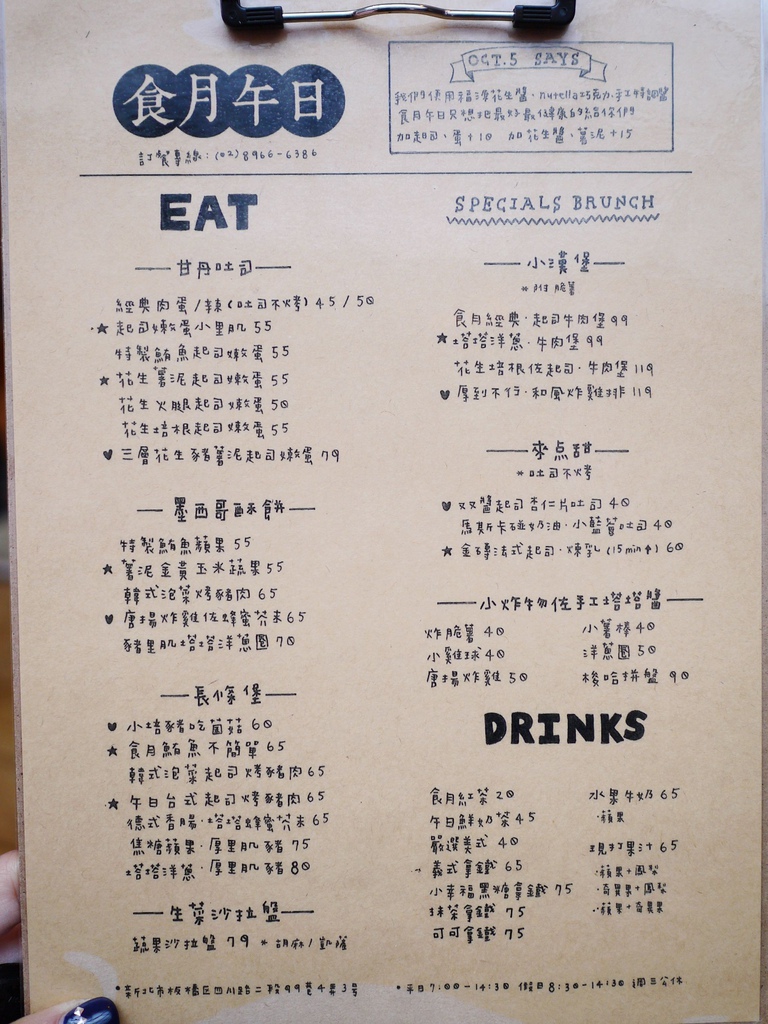 食月午日
訂餐專線：(02)8966-6386
OCT.5 SAYS
我們使用福源花生醬・nutella巧克力・手工特調醬
食月午日只想把最好最健康的給你們
加起司、蛋+10 加花生醬、薯泥+15
EAT
甘丹吐司
經典肉蛋/辣(吐司不烤) 45/50
★起司嫩蛋小里肌 55
特製鮪魚起司嫩蛋 55
★花生薯泥起司嫩蛋 55
花生火腿起司嫩蛋 50
花生培根起司嫩蛋 55
♥三層花生豬薯泥起司嫩蛋 79
墨西哥酥餅
特製鮪魚蘋果 55
★薯泥金黃玉米蔬果 55
韓式泡菜烤豬肉 65
♥唐揚炸雞佐蜂蜜芥末 65
豬里肌塔塔洋蔥圈 70
長條堡
♥小培豬吃菌菇 60
★食月鮪魚不簡單 65
韓式泡菜起司烤豬肉 65
★午日台式起司烤豬肉 65
德式香腸・塔塔蜂蜜芥末 65
焦糖蘋果・厚里肌豬 75
塔塔洋蔥・厚里肌豬 80
生菜沙拉盤
蔬果沙拉盤 79 *胡麻/凱薩
SPECIALS BRUNCH
小漢堡
*附脆薯
食月經典・起司牛肉堡 99
★塔塔洋蔥・牛肉堡 99
花生培根佐起司・牛肉堡 119
♥厚到不行・和風炸雞排 119
來点甜
*吐司不烤
♥双醬起司杏仁片吐司 40
馬斯卡碰奶油・小藍莓吐司 40
★金磚法式起司・煉乳(15min↑) 60
小炸物佐手工塔塔醬
炸脆薯 40 小薯棒 40
小雞球 40 洋蔥圈 50
唐揚炸雞 50 梭哈拼盤 90
DRINKS
食月紅茶 20
午日鮮奶茶 45
嚴選美式 40
義式拿鐵 65
小幸福黑糖拿鐵 75
抹茶拿鐵 75
可可拿鐵 75
水果牛奶 65
・蘋果
現打果汁 65
・蘋果+鳳梨
・奇異果+鳳梨
・蘋果+奇異果
•新北市板橋區四川路二段99巷4弄3號
•平日7:00-14:30 假日8:30-14:30 週三公休